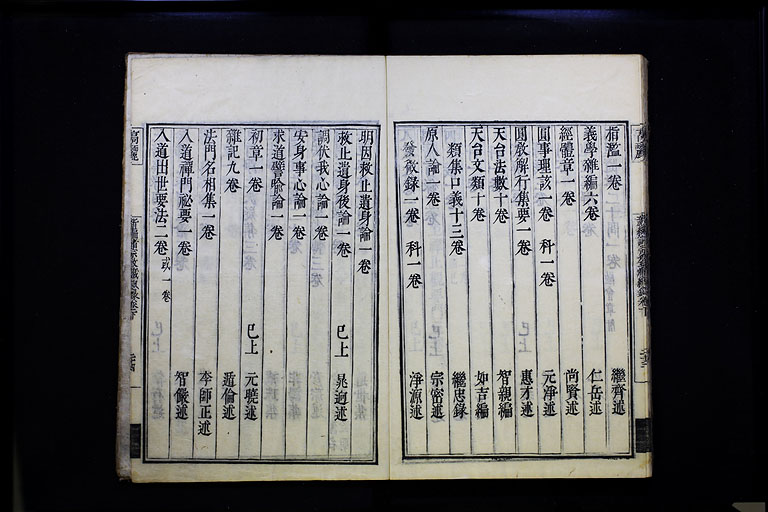 指濫一卷 繼齊述
義學雜編六卷 仁岳述
經體章一卷 尚賢述
圓事理該一卷 科一卷 元淨述
圓敎解行集要一卷 已上 惠才述
天台法數十卷 智親編
天台文類十卷 如吉編
類集口義十三卷 繼忠錄
原人論一卷 宗密述
發微錄一卷 科一卷 淨源述
明因救止遺身論一卷
救止遺身後論一卷 已上 晁迥述
調伏我心論一卷
安身事心論一卷
求道譬喩論一卷
初章一卷 已上 元曉述
雜記九卷 遁倫述
法門名相集一卷 李師正述
入道禪門祕要一卷 智儼述
入道出世要法二卷 或一卷